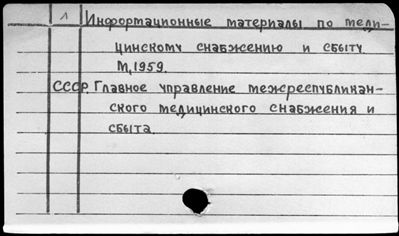 1 Информационные материалы по меди-
цинскому снабжению и сбыту.
М, 1959.
СССР. Главное управление межреспубликан-
ского медицинского снабжения и
сбыта.